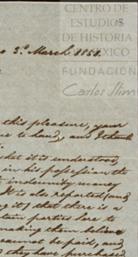 CENTRO DE
ESTUDIOS
DE HISTORIA
DE MÉXICO
FUNDACIÓN
Carlos Slim
3d. March 1858.
this pleasure, your
to hand, and I thank
that it is understood
in his possession the
indemnity money
It is also reported (and
it) that there is a
certain parties here to
making them believe
cannot be paid, and
they have purchased